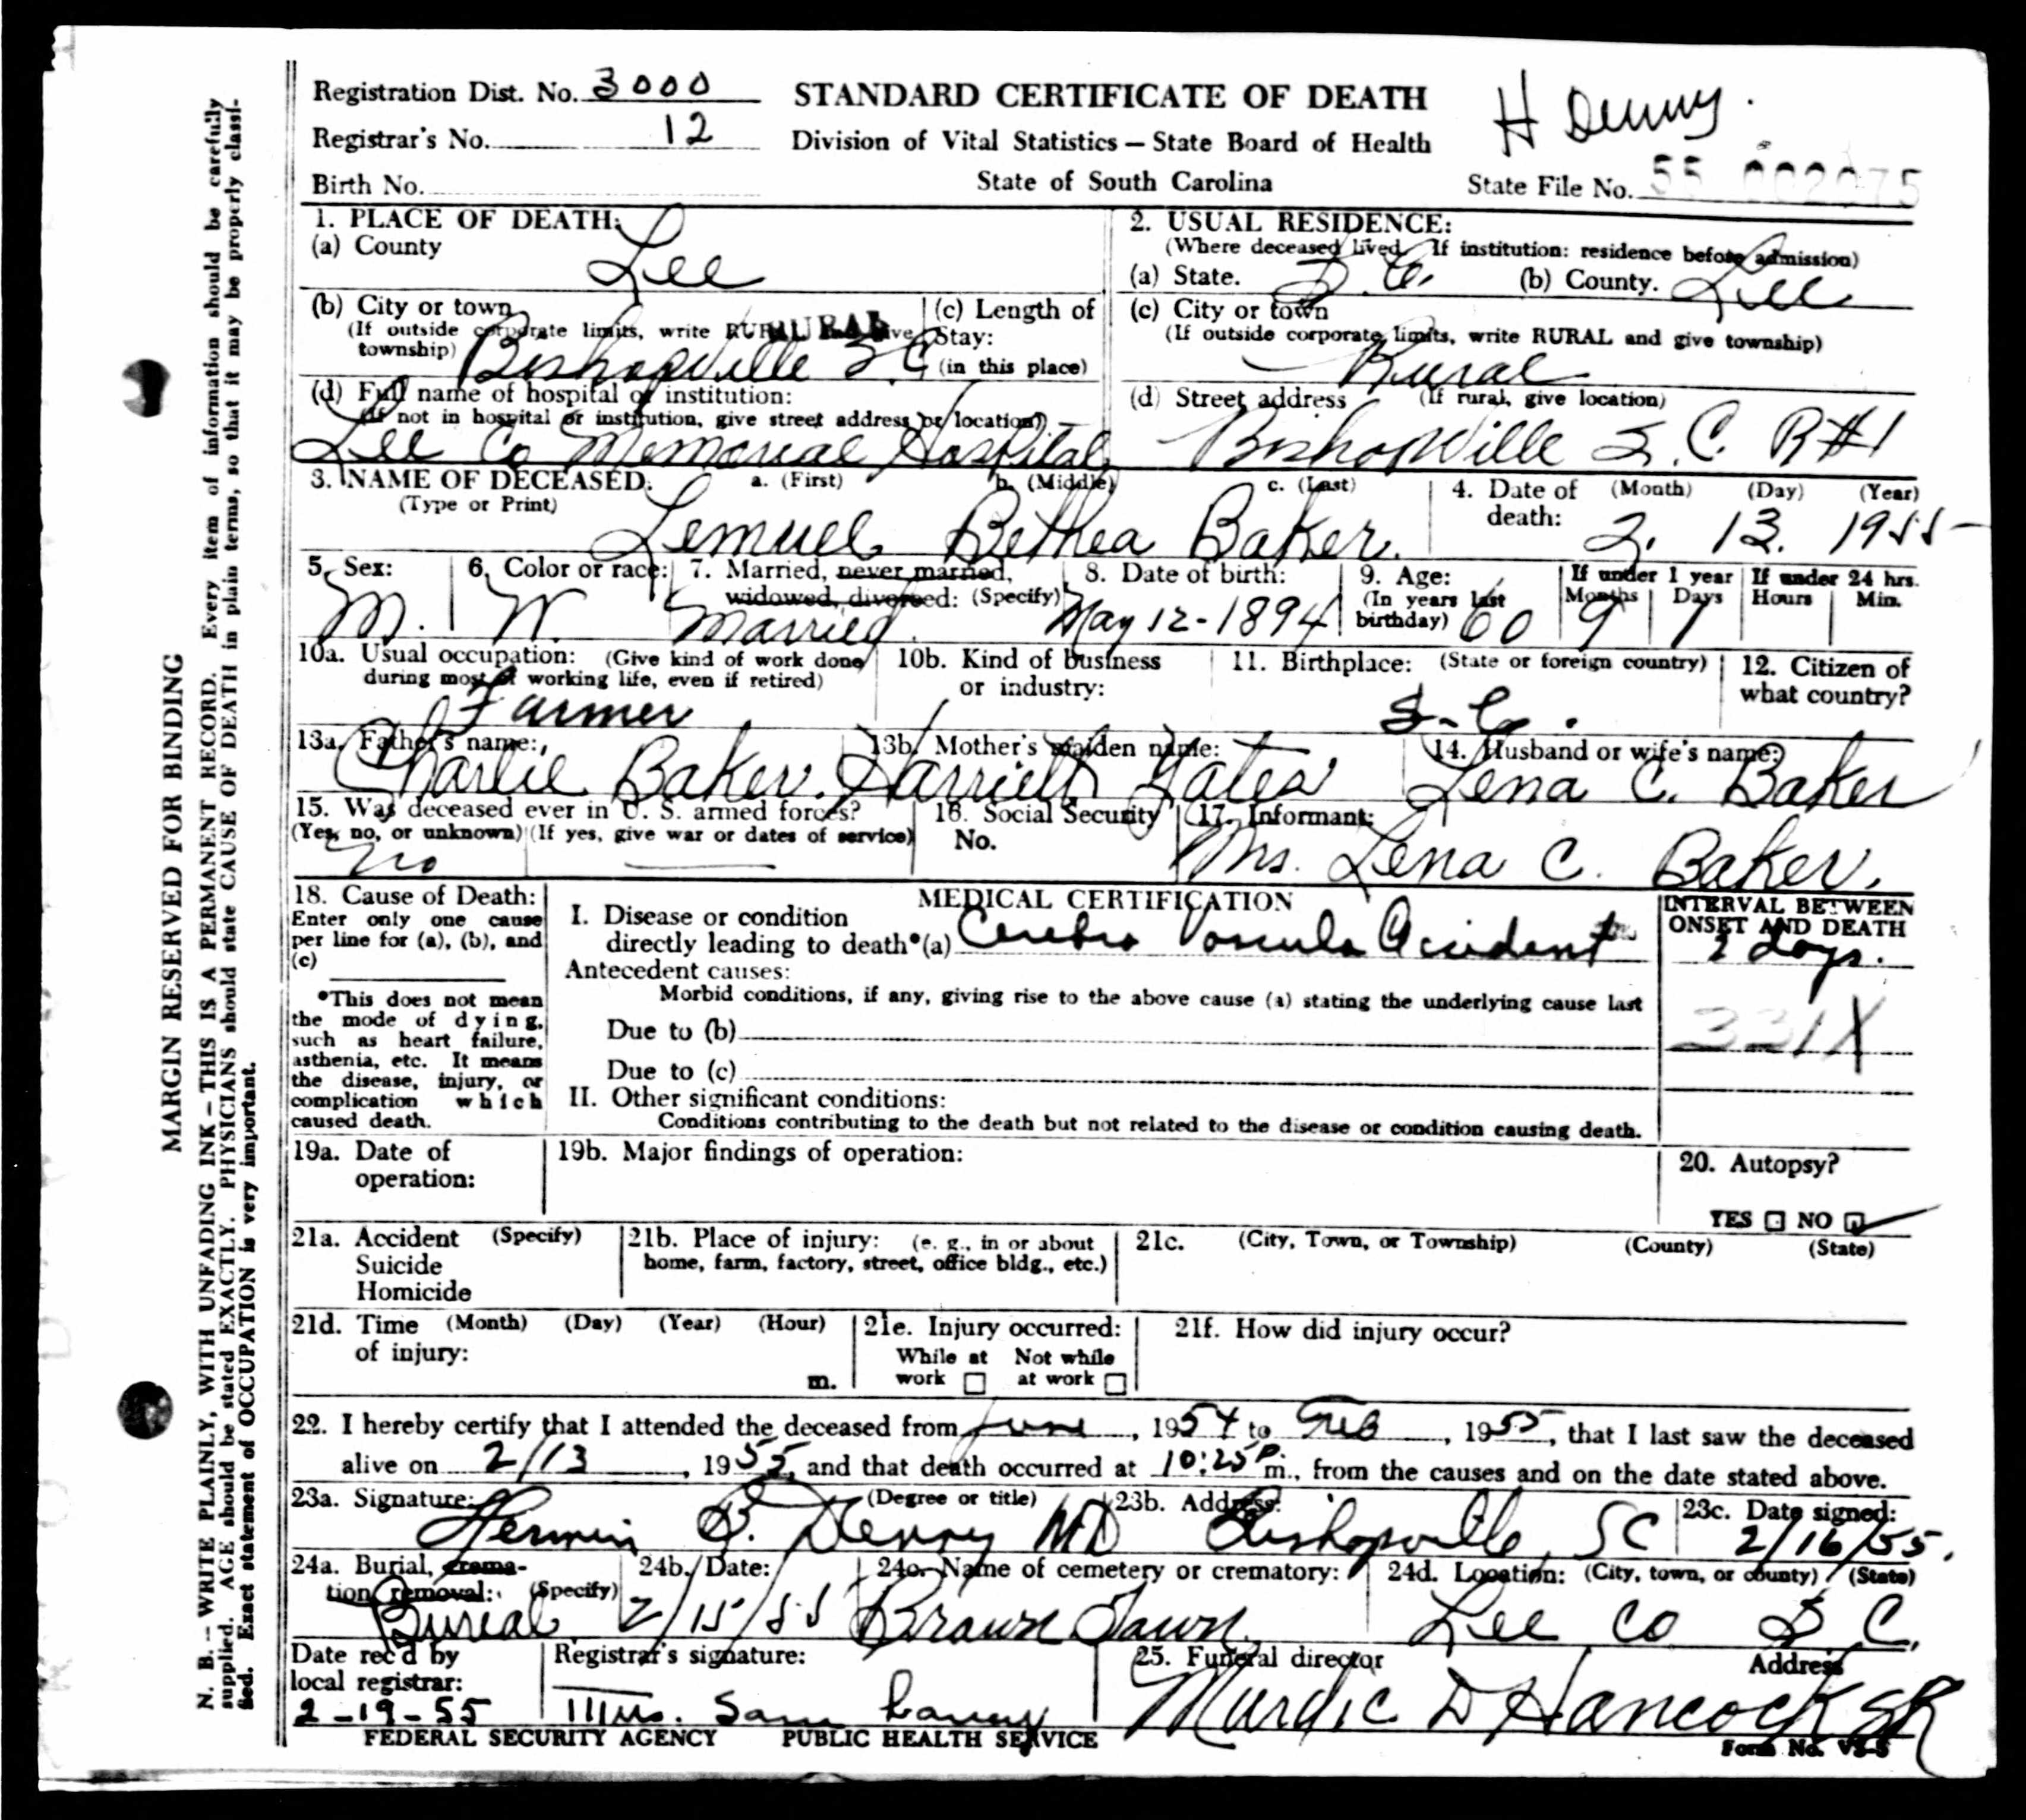 Registration Dist. No. 3000
Registrar's No. 12
Birth No.
STANDARD CERTIFICATE OF DEATH
Division of Vital Statistics – State Board of Health
State of South Carolina
H Denny.
State File No. 55 002075
MARGIN RESERVED FOR BINDING
N. B. – WRITE PLAINLY, WITH UNFADING INK – THIS IS A PERMANENT RECORD. Every item of information should be carefully
supplied. AGE should be stated EXACTLY. PHYSICIANS should state CAUSE OF DEATH in plain terms, so that it may be properly classi-
fied. Exact statement of OCCUPATION is very important.
1. PLACE OF DEATH:
(a) County
Lee
(b) City or town
(If outside corporate limits, write RURAL and give
township)
RURAL
Bishopville S.C
(c) Length of
Stay:
(in this place)
(d) Full name of hospital or institution:
(If not in hospital or institution, give street address or location)
Lee Co Memorial Hospital
2. USUAL RESIDENCE:
(Where deceased lived. If institution: residence before admission)
(a) State. S.C. (b) County. Lee
(c) City or town
(If outside corporate limits, write RURAL and give township)
Rural
(d) Street address (If rural, give location)
Bishopville S.C. R#1
3. NAME OF DECEASED: a. (First) b. (Middle) c. (Last)
(Type or Print)
Lemuel Bethea Baker.
4. Date of (Month) (Day) (Year)
death: 2. 13. 1955
5. Sex:
M.
6. Color or race:
W.
7. Married, never married,
widowed, divorced: (Specify)
Married
8. Date of birth:
May 12-1894
9. Age:
(In years last
birthday) 60
If under 1 year
Months Days
9 1
If under 24 hrs.
Hours Min.
10a. Usual occupation: (Give kind of work done
during most of working life, even if retired)
Farmer
10b. Kind of business
or industry:
11. Birthplace: (State or foreign country)
S.C.
12. Citizen of
what country?
13a. Father's name:
Charlie Baker.
13b. Mother's maiden name:
Harriett Yates
14. Husband or wife's name:
Lena C. Baker
15. Was deceased ever in U. S. armed forces?
(Yes, no, or unknown) (If yes, give war or dates of service)
no
16. Social Security
No.
17. Informant:
Mrs. Lena C. Baker.
18. Cause of Death:
Enter only one cause
per line for (a), (b), and
(c)
*This does not mean
the mode of dying,
such as heart failure,
asthenia, etc. It means
the disease, injury, or
complication which
caused death.
MEDICAL CERTIFICATION
I. Disease or condition
directly leading to death*(a) Cerebro Vascula Accident
Antecedent causes:
Morbid conditions, if any, giving rise to the above cause (a) stating the underlying cause last
Due to (b)
Due to (c)
II. Other significant conditions:
Conditions contributing to the death but not related to the disease or condition causing death.
INTERVAL BETWEEN
ONSET AND DEATH
days.
331X
19a. Date of
operation:
19b. Major findings of operation:
20. Autopsy?
YES NO
21a. Accident (Specify)
Suicide
Homicide
21b. Place of injury: (e. g., in or about
home, farm, factory, street, office bldg., etc.)
21c. (City, Town, or Township) (County) (State)
21d. Time (Month) (Day) (Year) (Hour)
of injury:
m.
21e. Injury occurred:
While at Not while
work at work
21f. How did injury occur?
22. I hereby certify that I attended the deceased from June, 1954 to Feb, 1955, that I last saw the deceased
alive on 2/13, 1955, and that death occurred at 10:25 P m., from the causes and on the date stated above.
23a. Signature: (Degree or title)
Denny MD
23b. Address:
Bishopville, SC
23c. Date signed:
2/16/55.
24a. Burial, crema-
tion removal: (Specify)
Bureal
24b. Date:
2/15/55
24c. Name of cemetery or crematory:
24d. Location: (City, town, or county) (State)
Lee Co S.C.
Date rec'd by
local registrar:
2-19-55
Registrar's signature:
Mrs. Sam
25. Funeral director Address
Murdic D Hancock SR
FEDERAL SECURITY AGENCY PUBLIC HEALTH SERVICE
Form No. VS-5